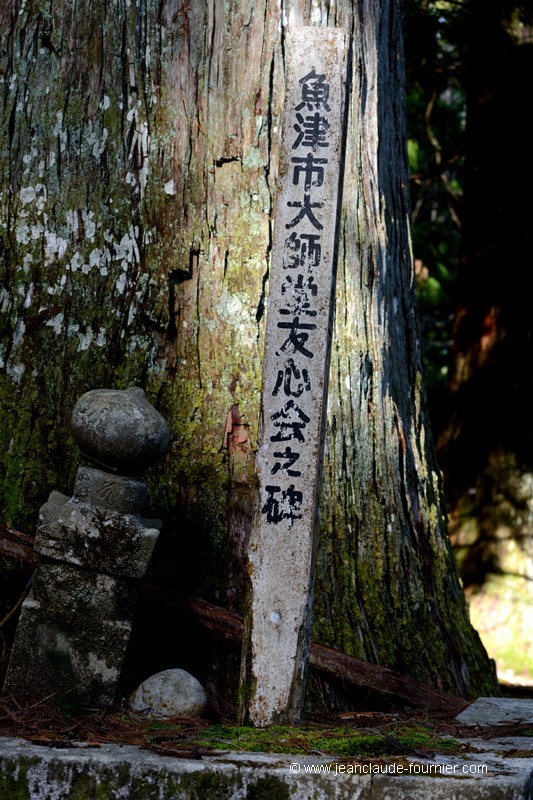 魚津市大師堂友心会之碑
© www.jeanclaude-fournier.com